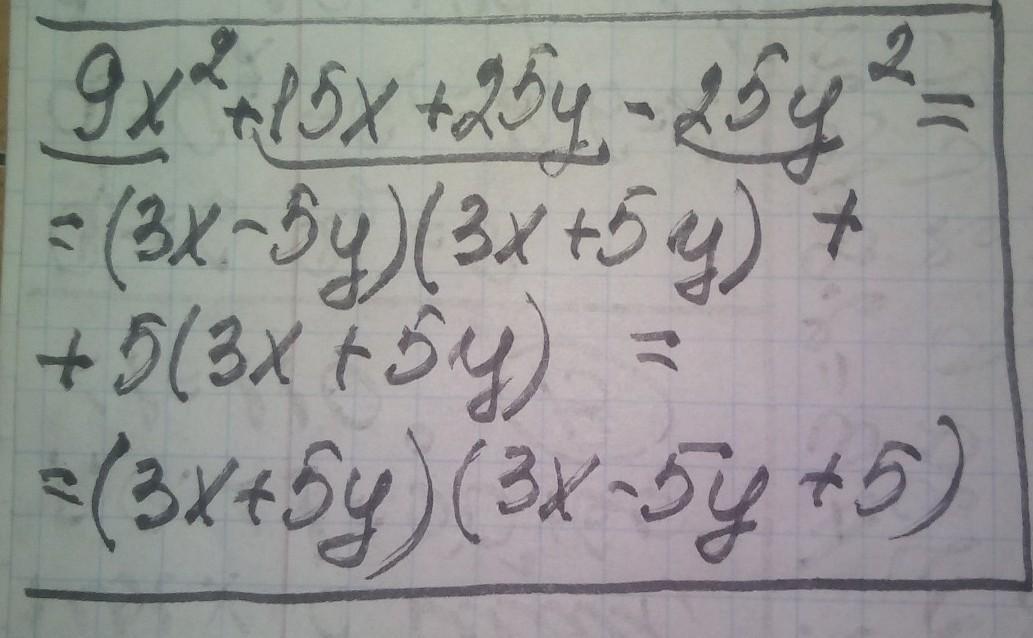 9x² + 15x + 25y - 25y² =
= (3x - 5y)(3x + 5y) +
+ 5(3x + 5y) =
= (3x + 5y)(3x - 5y + 5)